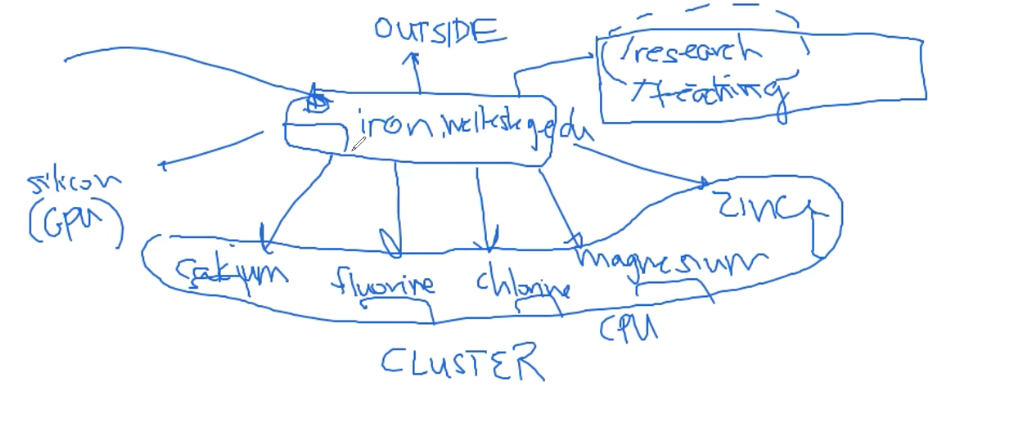 OUTSIDE
/research
/teaching
iron.wellesley.edu
silicon
(GPU)
zinc
calcium
fluorine
chlorine
magnesium
CPU
CLUSTER